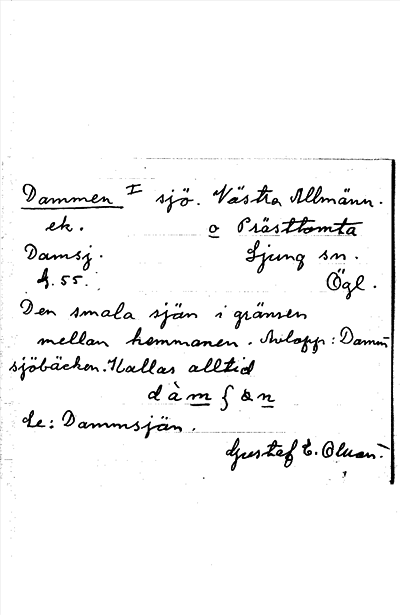 Dammen I sjö. Västra Allmänn.
ek. o Prästtomta
Damsj. Ljung sn.
h. 55. Ögl.
Den smala sjön i gränsen
mellan hemmanen. Avlopp: Damm
sjöbäcken. Kallas alltid
dàm
Le: Dammsjön.
Gustaf E. Olsson.